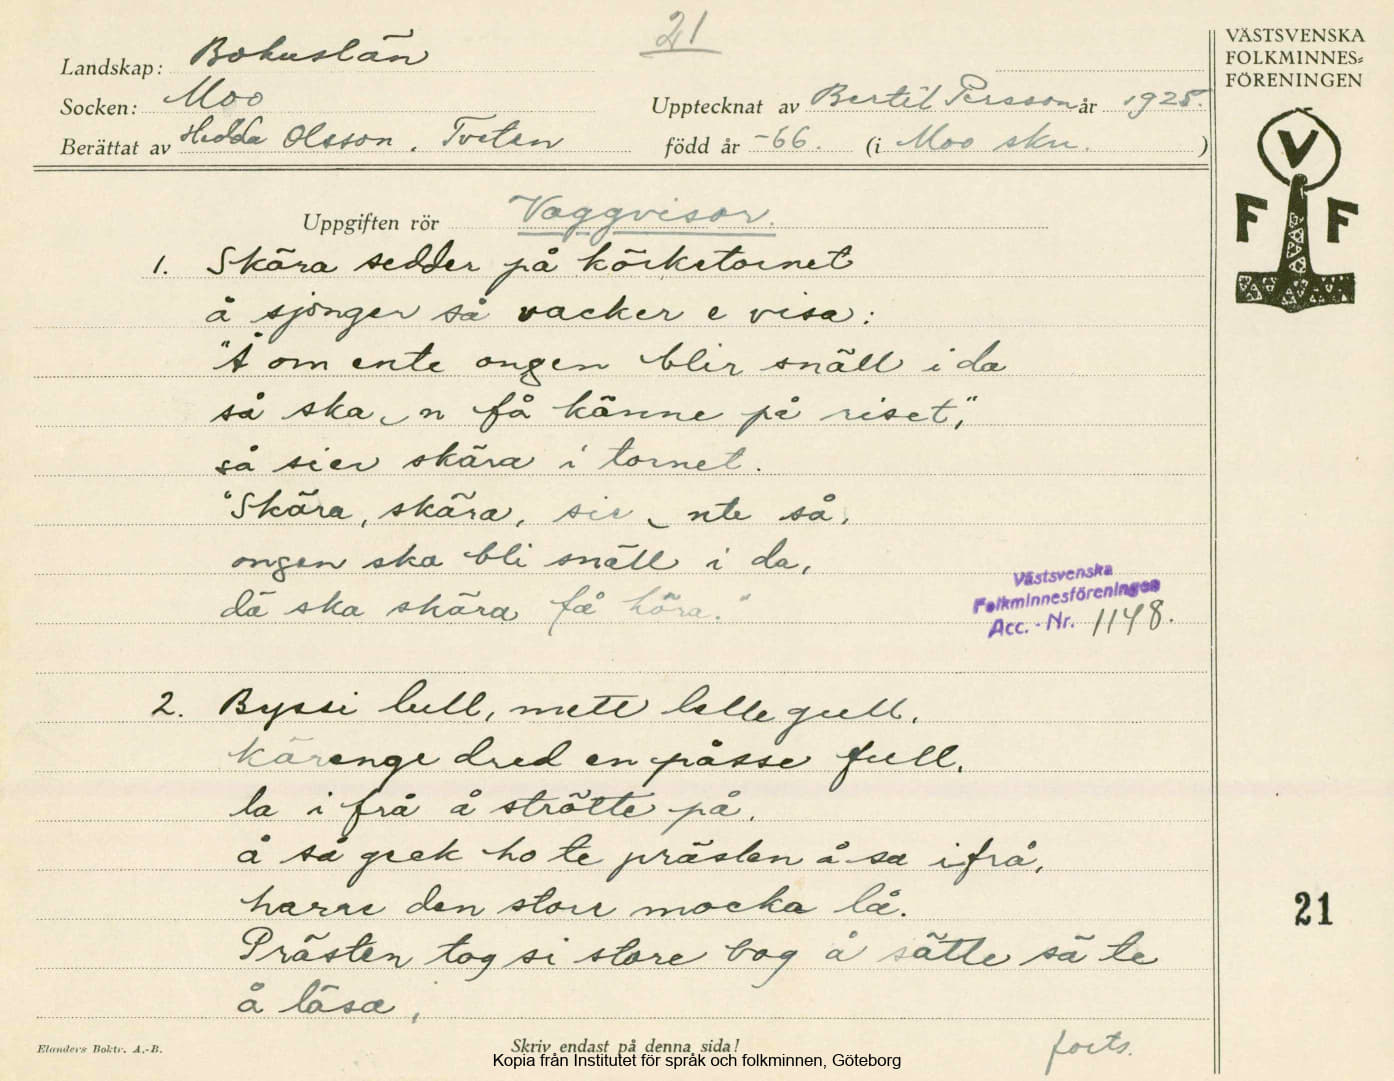 21
VÄSTSVENSKA
FOLKMINNES=
FÖRENINGEN
V
F F
Landskap: Bohuslän
Socken: Moo
Upptecknat av Bertil Persson år 1925.
Berättat av Hedda Olsson, Tveten
född år -66. (i Moo skn. )
Uppgiften rör Vaggvisor.
1. Skära sedder på körketornet
å sjönger så vacker e visa:
"Å om ente ongen blir snäll i da
så ska n få känne på riset,"
så sier skära i tornet.
"Skära, skära, sie nte så,
ongen ska bli snäll i da,
dä ska skära få höra."
Västsvenska
Folkminnesföreningen
Acc. - Nr. 1148.
2. Byssi lull, mett lelle gull,
kärenge dred en påsse full,
la i frå å strötte på,
å så geek ho te prästen å sa ifrå,
harre den store mocka lå.
Prästen tog si store bog å sätte sä te
å läsa,
21
Elanders Boktr. A.-B.
Skriv endast på denna sida!
forts.
Kopia från Institutet för språk och folkminnen, Göteborg